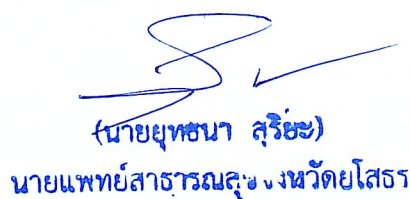 (นายยุทธนา สุริยะ)
นายแพทย์สาธารณสุขจังหวัดยโสธร